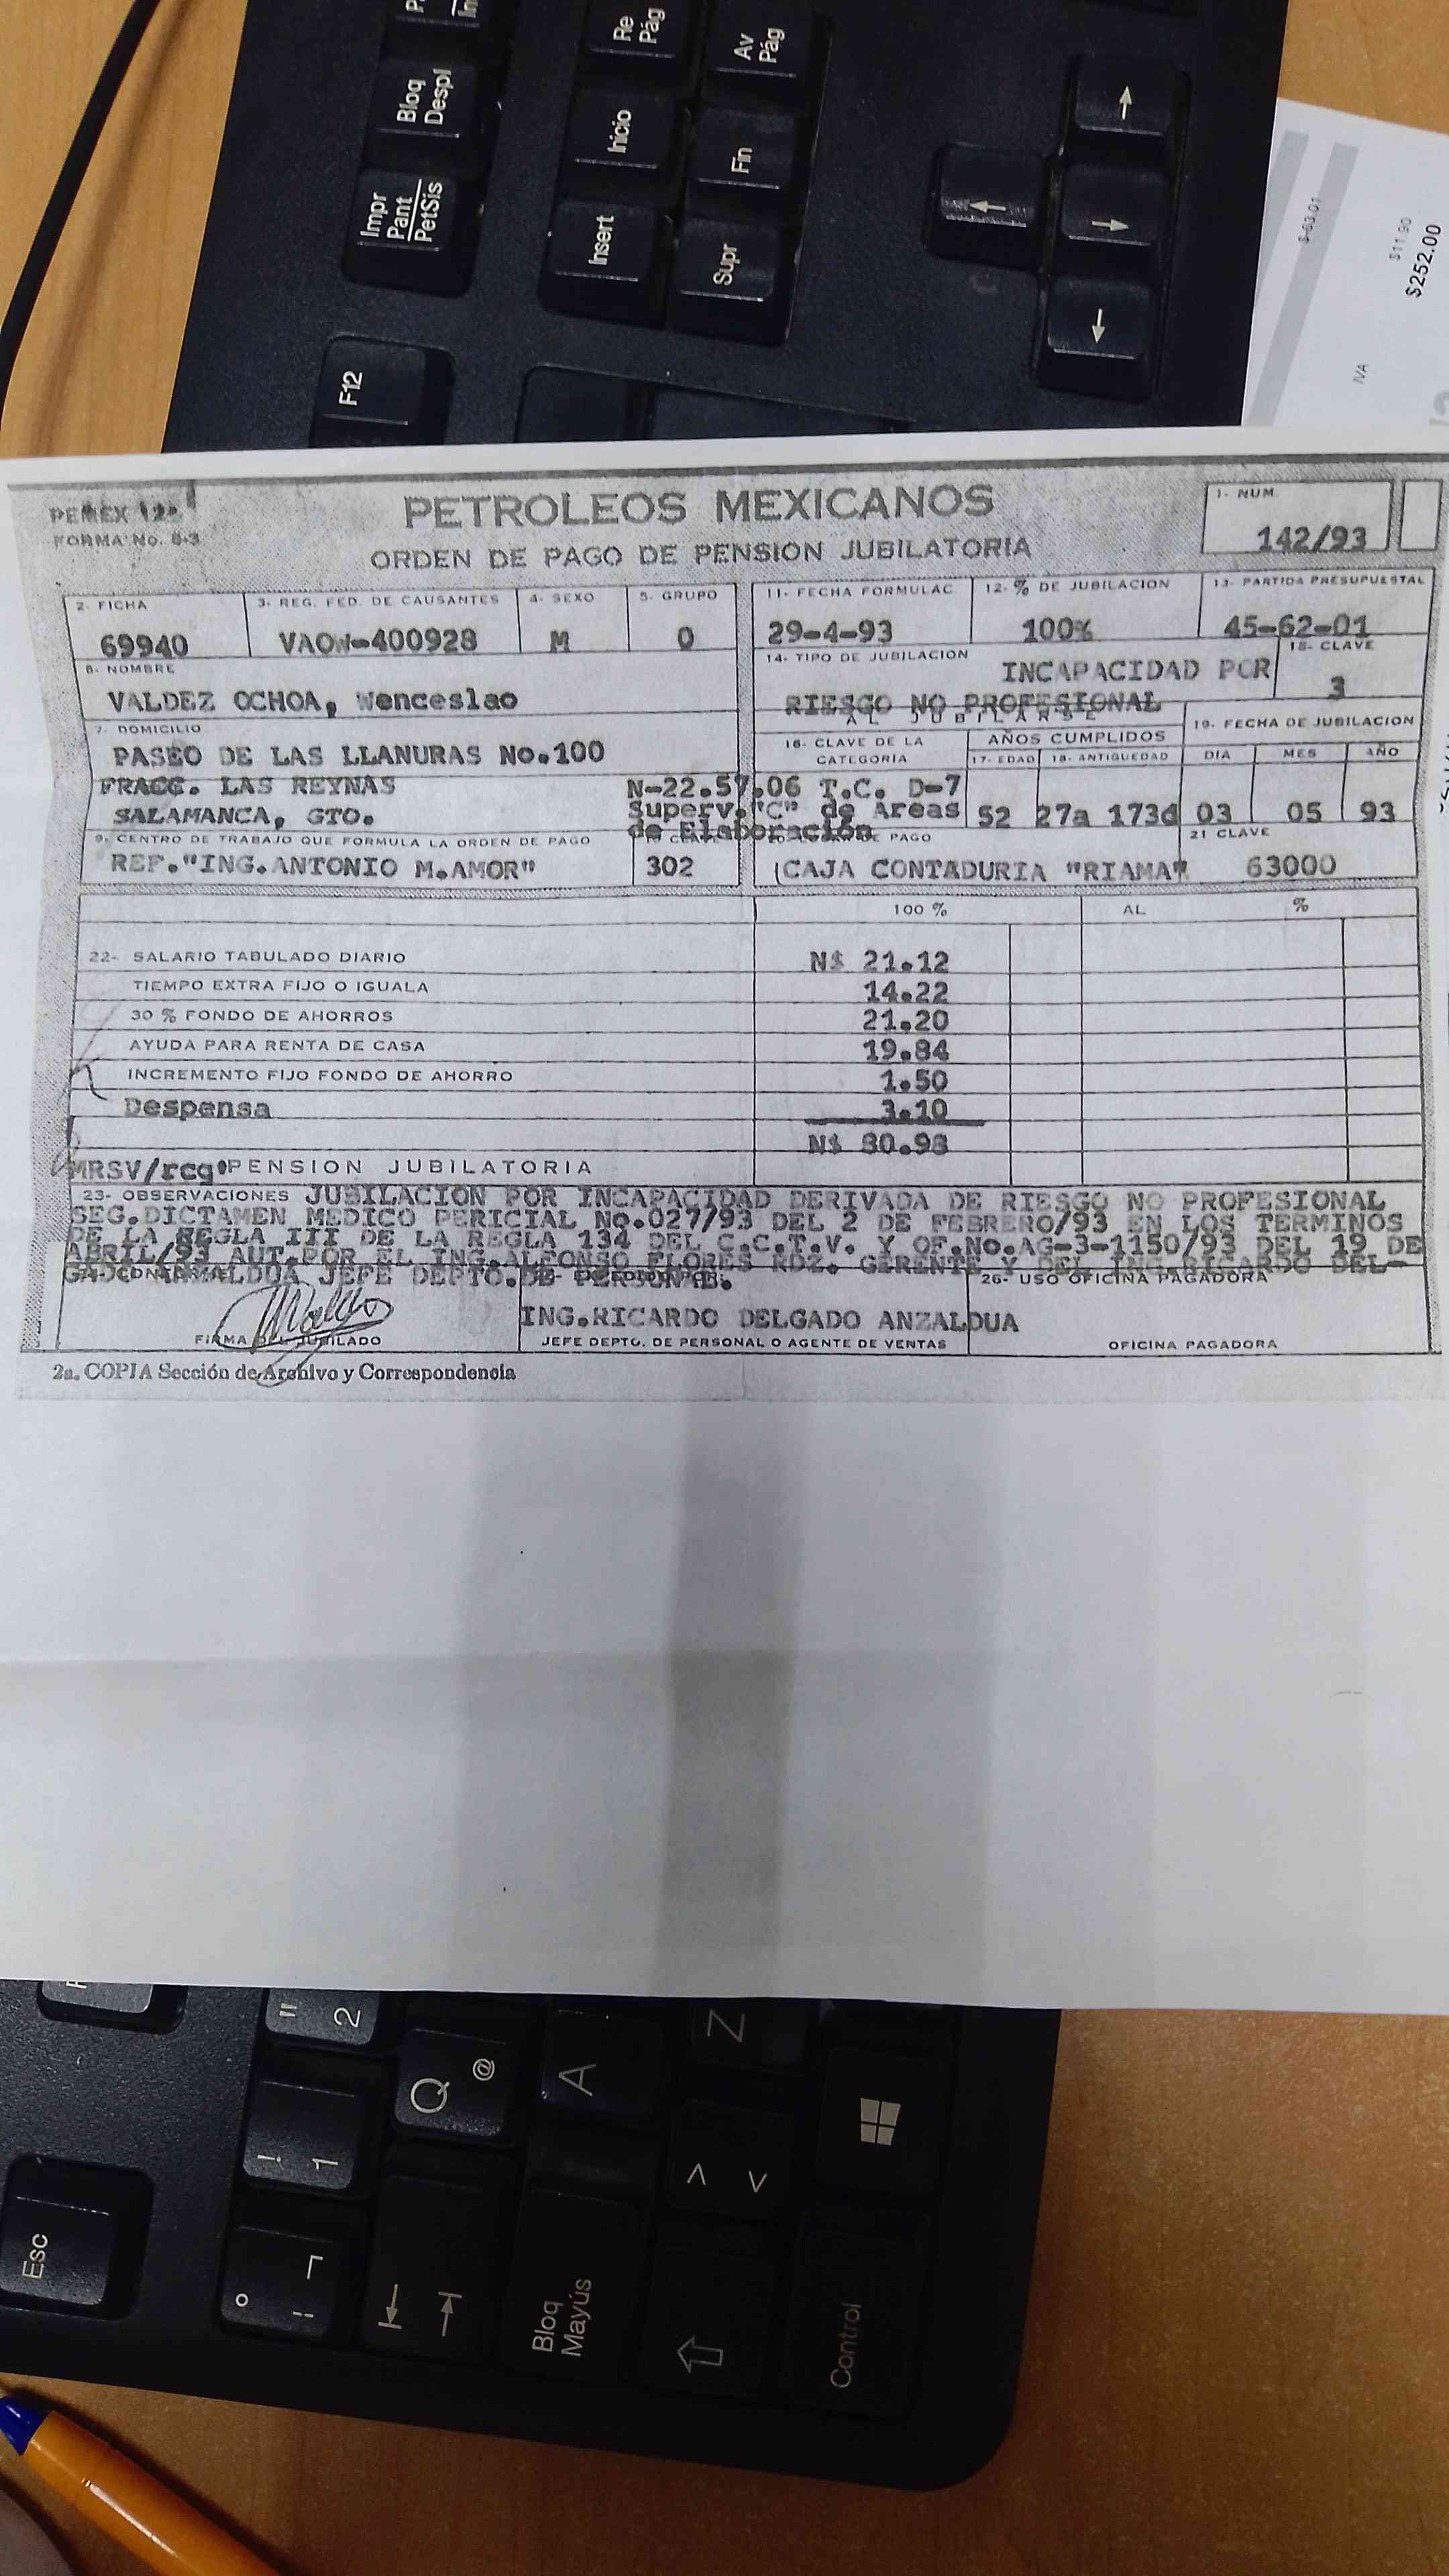 Re
Pág
Av
Pág
Bloq
Despl
Inicio
Fin
Impr
Pant
PetSis
Insert
Supr
F12
$-63.01
$11.90
$252.00
IVA
PEMEX
FORMA No. 8-3
PETROLEOS MEXICANOS
ORDEN DE PAGO DE PENSION JUBILATORIA
1- NUM.
142/93
2- FICHA 3- REG. FED. DE CAUSANTES 4- SEXO 5- GRUPO
69940 VAOW-400928 M 0
11- FECHA FORMULAC 12- % DE JUBILACION 13- PARTIDA PRESUPUESTAL
29-4-93 100% 45-62-01
6- NOMBRE
VALDEZ OCHOA, Wenceslao
14- TIPO DE JUBILACION 15- CLAVE
INCAPACIDAD POR 3
RIESGO NO PROFESIONAL
7- DOMICILIO
PASEO DE LAS LLANURAS No.100
FRACC. LAS REYNAS
SALAMANCA, GTO.
AL JUBILARSE
16- CLAVE DE LA CATEGORIA
AÑOS CUMPLIDOS
17- EDAD 18- ANTIGUEDAD
19- FECHA DE JUBILACION
DIA MES AÑO
N-22.57.06 T.C. D-7
Superv."C" de Areas
de Elaboración
52 27a 173d 03 05 93
9- CENTRO DE TRABAJO QUE FORMULA LA ORDEN DE PAGO
REF."ING.ANTONIO M.AMOR" 302
DE PAGO 21 CLAVE
(CAJA CONTADURIA "RIAMA" 63000
100 % AL %
22- SALARIO TABULADO DIARIO N$ 21.12
TIEMPO EXTRA FIJO O IGUALA 14.22
30 % FONDO DE AHORROS 21.20
AYUDA PARA RENTA DE CASA 19.84
INCREMENTO FIJO FONDO DE AHORRO 1.50
Despensa 3.10
N$ 80.98
MRSV/rcg PENSION JUBILATORIA
23- OBSERVACIONES JUBILACION POR INCAPACIDAD DERIVADA DE RIESGO NO PROFESIONAL
SEG.DICTAMEN MEDICO PERICIAL No.027/93 DEL 2 DE FEBRERO/93 EN LOS TERMINOS
DE LA REGLA III DE LA REGLA 134 DEL C.C.T.V. Y OF.No.AG-3-1150/93 DEL 19 DE
ABRIL/93 AUT.POR EL ING.ALFONSO FLORES RDZ. GERENTE Y DEL ING.RICARDO DEL-
GADO ANZALDUA JEFE DEPTO.DE PERSONAL.
26- USO OFICINA PAGADORA
ING.RICARDO DELGADO ANZALDUA
FIRMA DEL JUBILADO JEFE DEPTO. DE PERSONAL O AGENTE DE VENTAS OFICINA PAGADORA
2a. COPIA Sección de Archivo y Correspondencia
" 2
Z
Q @
A
! 1
> <
Esc
Bloq
Mayús
Control